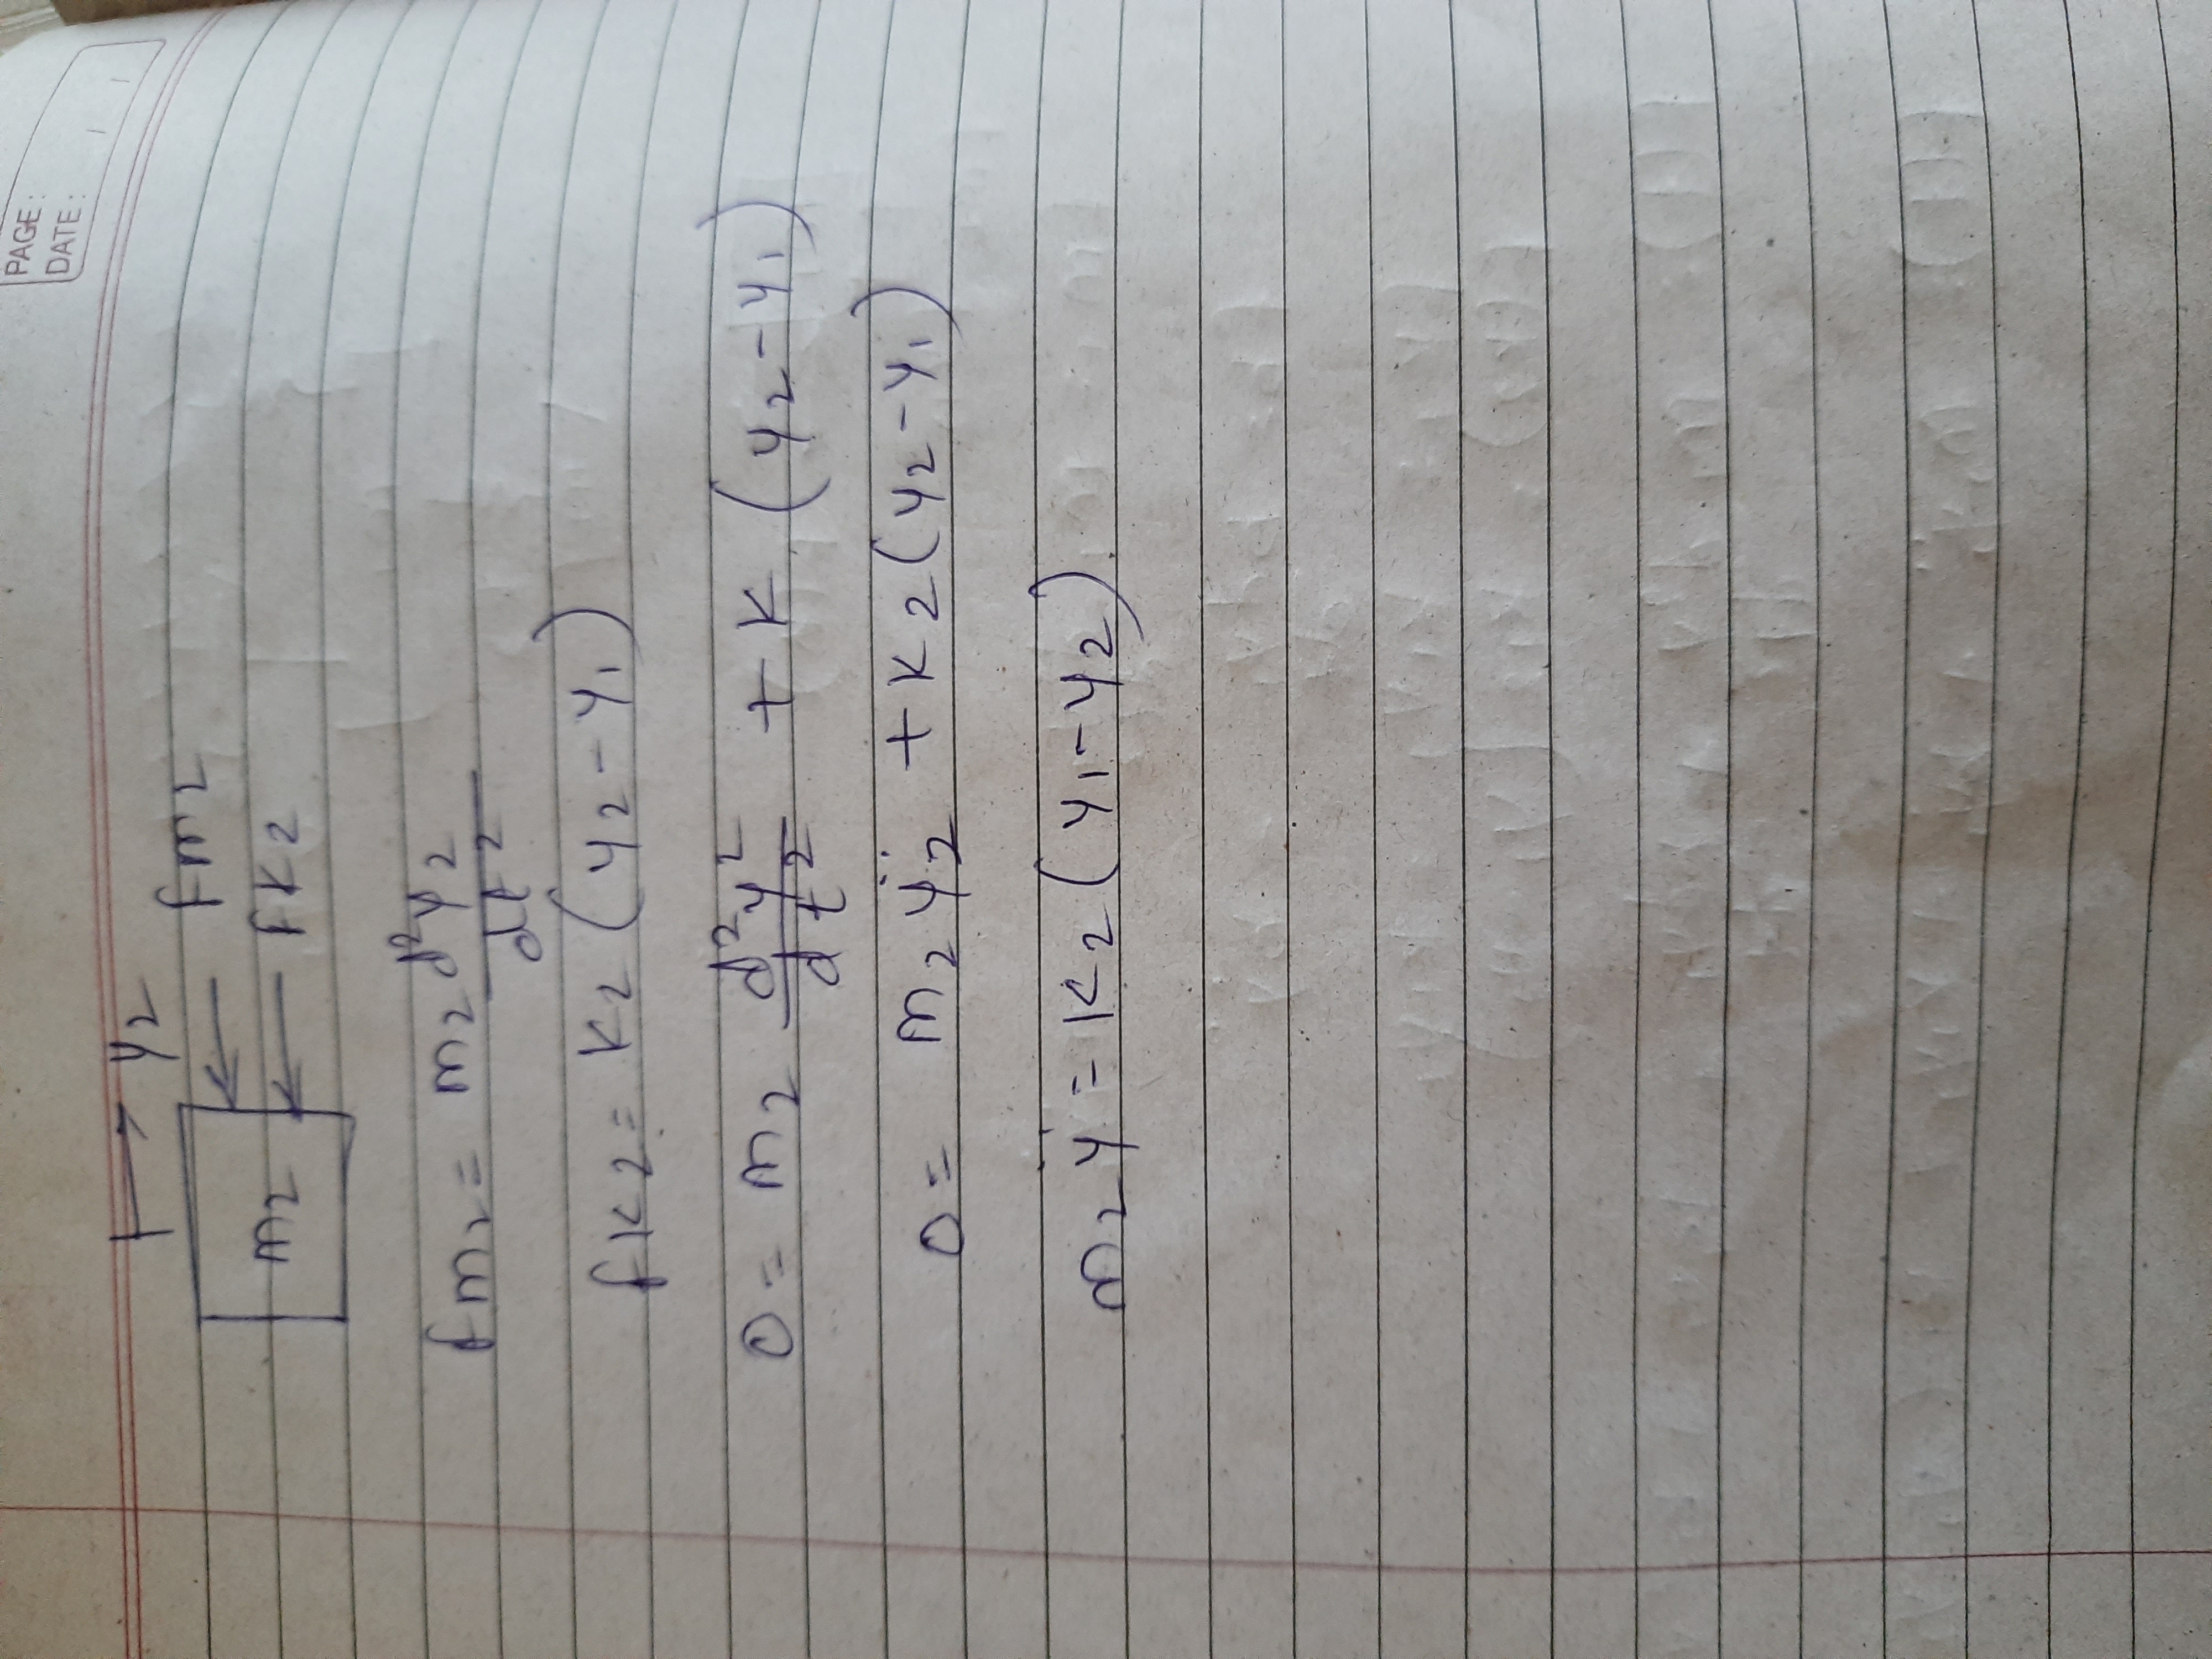 PAGE:
DATE: / /
y2
fm2
m2
fk2
fm2 = m2 d²y2/dt²
fk2 = k2 (y2 - y1)
0 = m2 d²y²/dt² + k (y2 - y1)
0 = m2 ÿ2 + k2 (y2 - y1)
m2 ÿ = k2 (y1 - y2)